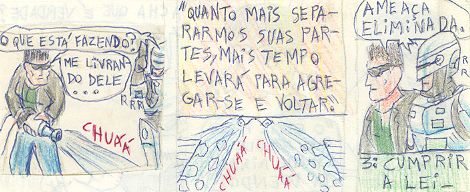 O QUE ESTÁ FAZENDO?
ME LIVRAN-
DO DELE...
RRR
CHUÁÁ
"QUANTO MAIS SEPA-
RARMOS SUAS PAR-
TES, MAIS TEMPO
LEVARÁ PARA AGRE-
GAR-SE E VOLTAR!"
CHUÁÁ
CHUÁÁ
AMEAÇA
ELIMINADA.
RRR
3: CUMPRIR
A LEI_